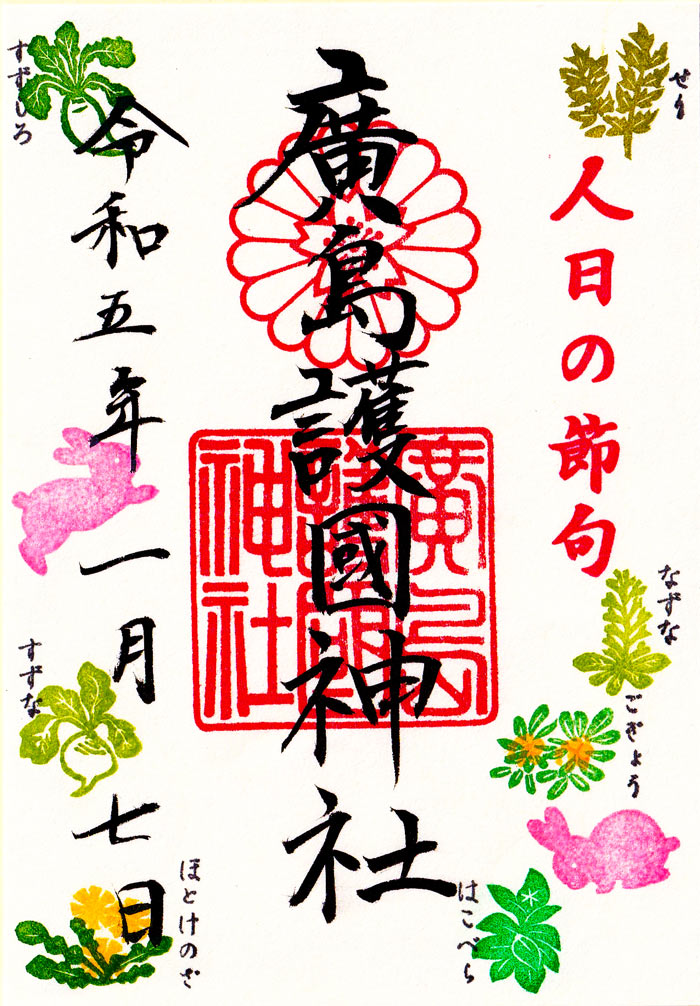 せり
人日の節句
なずな
ごぎょう
はこべら
廣島護國神社
廣島護國神社
令和五年 一月 七日
すずしろ
すずな
ほとけのざ